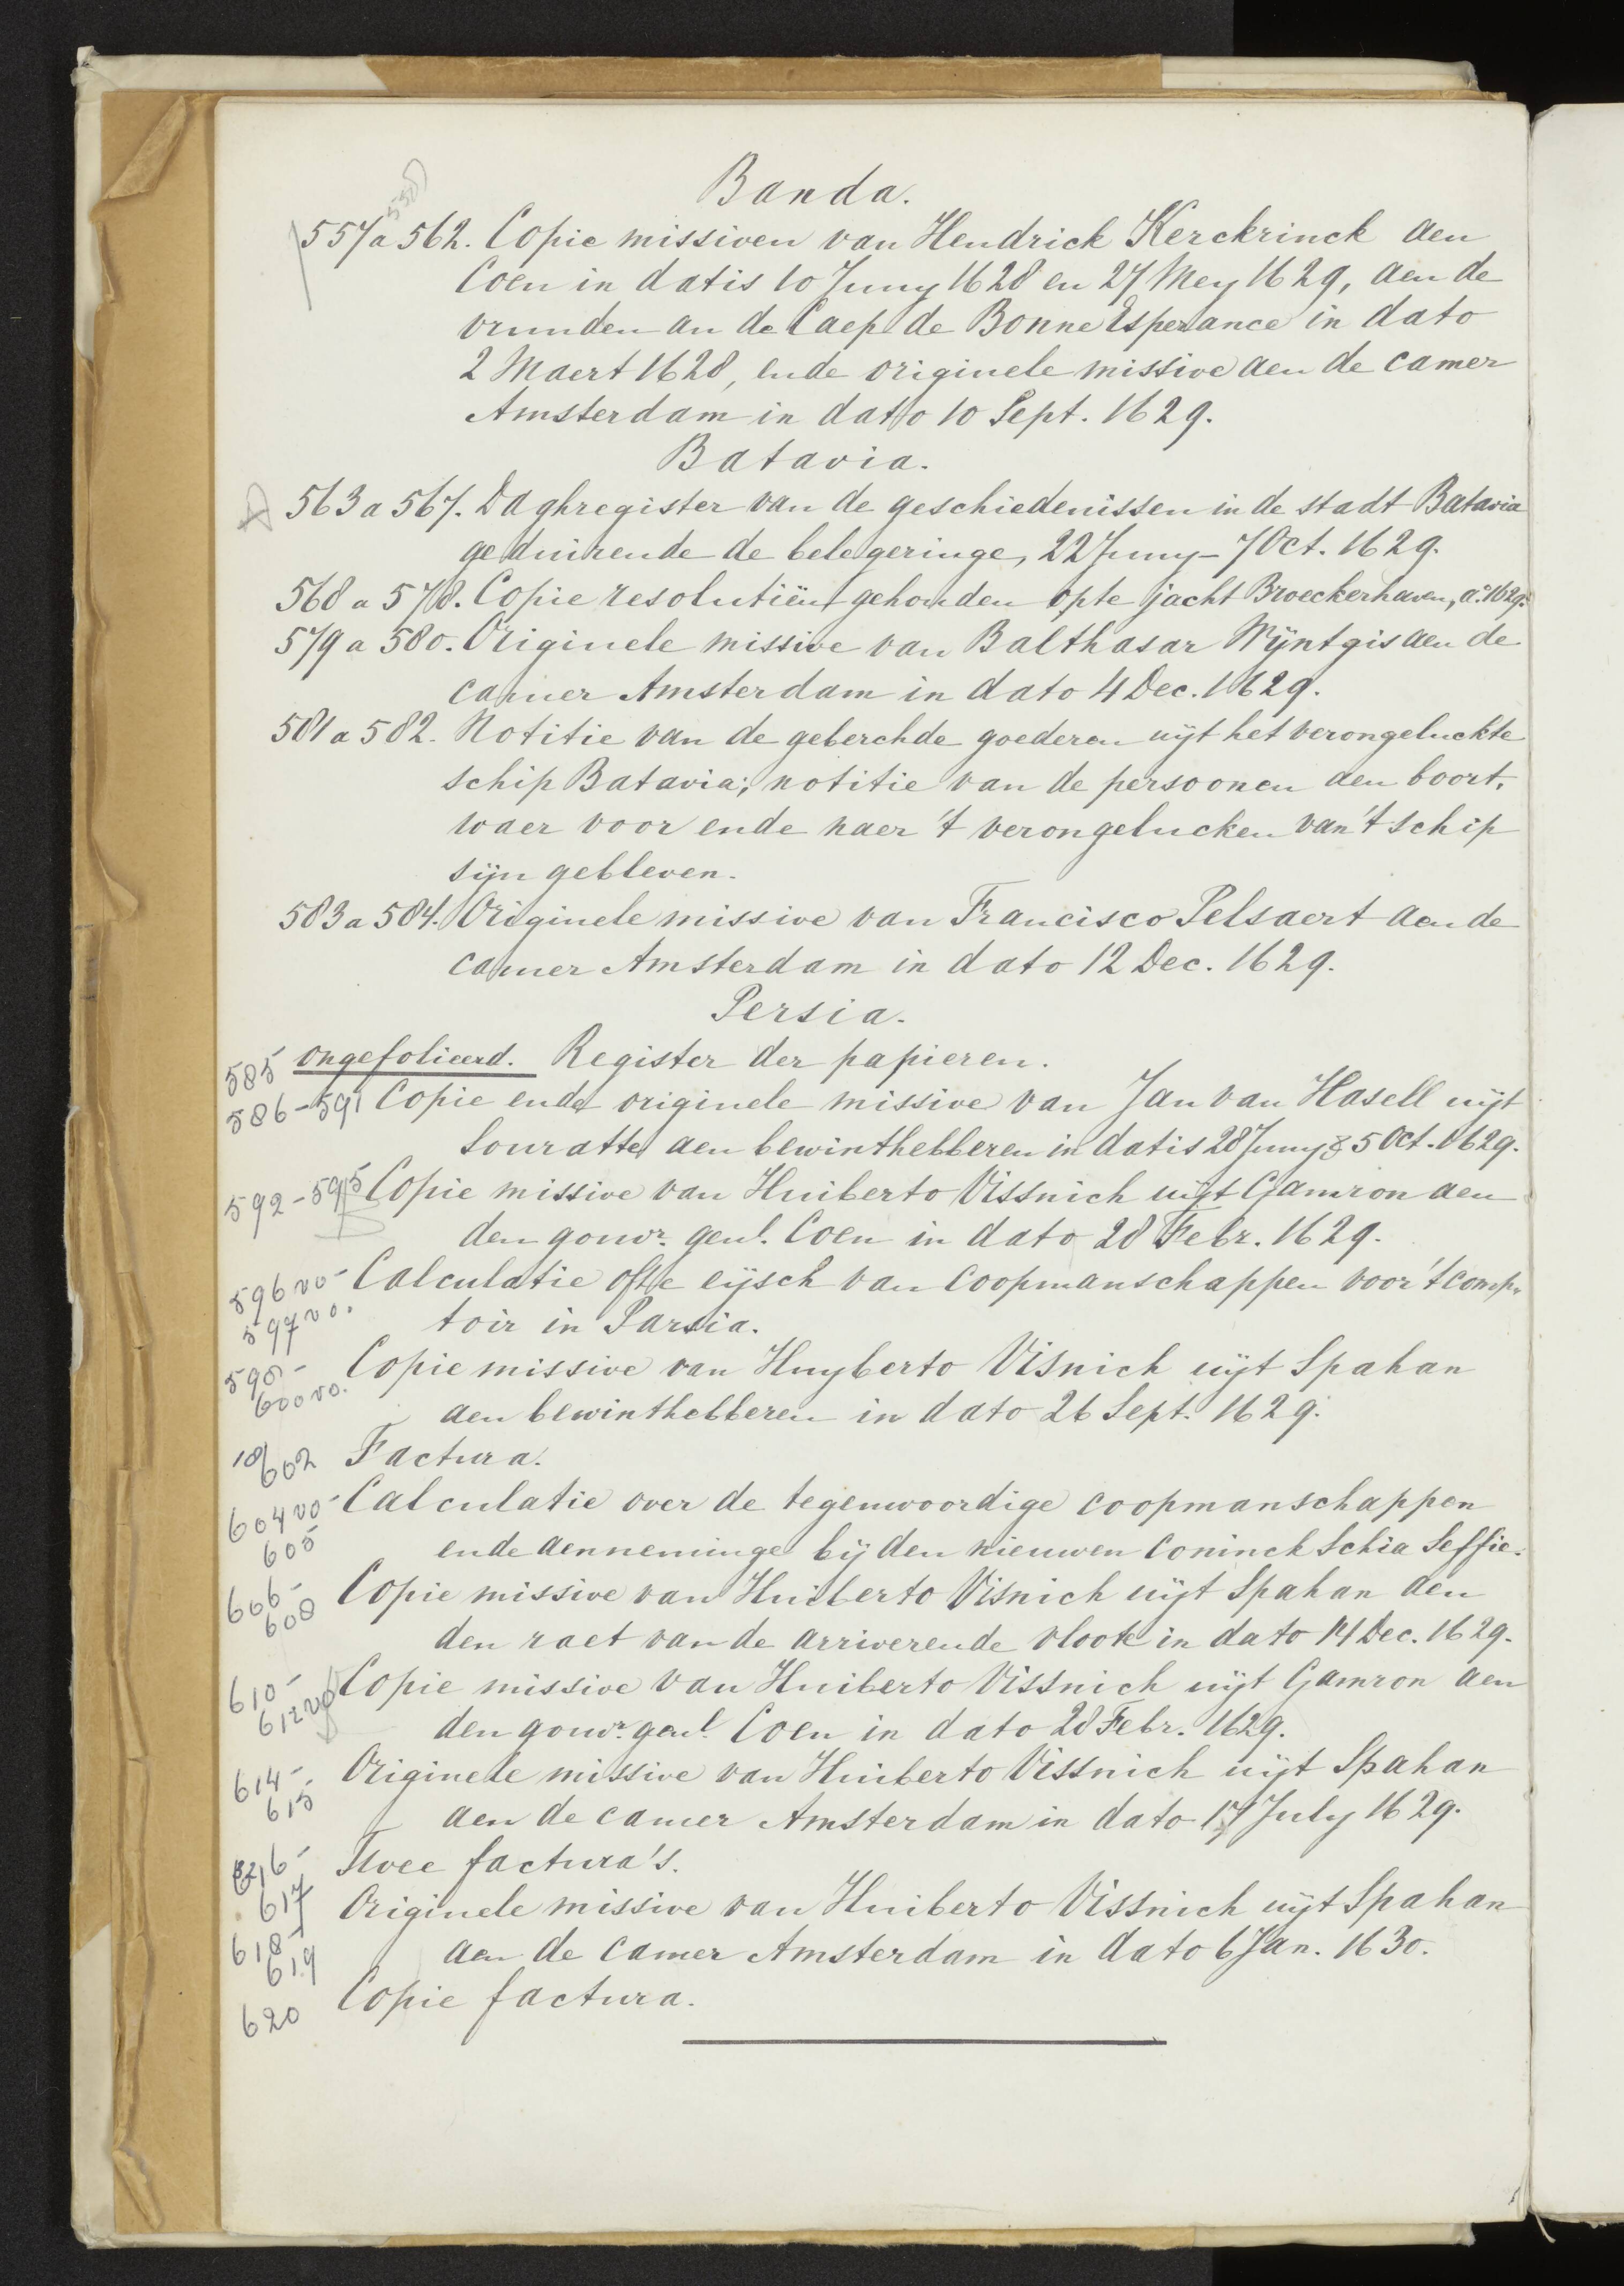 Banda.
557 a 562. Copie missiven van Hendrick Kerckrinck aen
Coen in datis 10 Juny 1628 en 27 Mey 1629, aen de
vrunden an de Caep de Bonne Esperance in dato
2 Maert 1628, ende originele missive aen de camer
Amsterdam in dato 10 Sept. 1629.
Batavia.
563 a 567. Daghregister van de geschiedenissen in de stadt Batavia
geduirende de belegeringe, 22 Juny - 7 Oct. 1629.
568 a 578. Copie resolutiën gehouden opte jacht Broeckerhaven, a.º 1629.
579 a 580. Originele missive van Balthasar Wÿntgis aen de
camer Amsterdam in dato 4 Dec. 1629.
581 a 582. Notitie van de geberchde goederen uÿt het verongeluckte
schip Batavia; notitie van de persoonen aen boort,
waer voor ende naer 't verongelucken van 't schip
sÿn gebleven.
583 a 584. Originele missive van Francisco Pelsaert aen de
camer Amsterdam in dato 12 Dec. 1629.
Persia.
585 ongefolieerd. Register der papieren.
586 - 591 Copie ende originele missive van Jan van Hasell uÿt
Souratte aen bewinthebberen in datis 28 Juny & 5 Oct. 1629.
592 - 595 Copie missive van Huiberto Vissnich uÿt Gamron aen
den gouvr. genl. Coen in dato 28 Febr. 1629.
596 vo - Calculatie ofte eÿsch van coopmanschappen voor 't comp-
597 vo. toir in Parsia.
598 - Copie missive van Huyberto Visnich uÿt Spahan
600 vo. aen bewinthebberen in dato 26 Sept. 1629.
602 Factura.
604 vo - Calculatie over de tegenwoordige coopmanschappen
605 ende aenneminge bÿ den nieuwen coninck Schia Seffie.
606 - Copie missive van Huiberto Visnich uÿt Spahan aen
608 den raet van de arriverende vloote in dato 14 Dec. 1629.
610 - Copie missive van Huiberto Vissnich uÿt Gamron aen
612 vo den gouvr. genl. Coen in dato 28 Febr. 1629.
614 - Originele missive van Huiberto Vissnich uÿt Spahan
615 aen de camer Amsterdam in dato 17 July 1629.
616 - Twee factura's.
617
618 - Originele missive van Huiberto Vissnich uÿt Spahan
619 aen de camer Amsterdam in dato 6 Jan. 1630.
620 Copie factura.